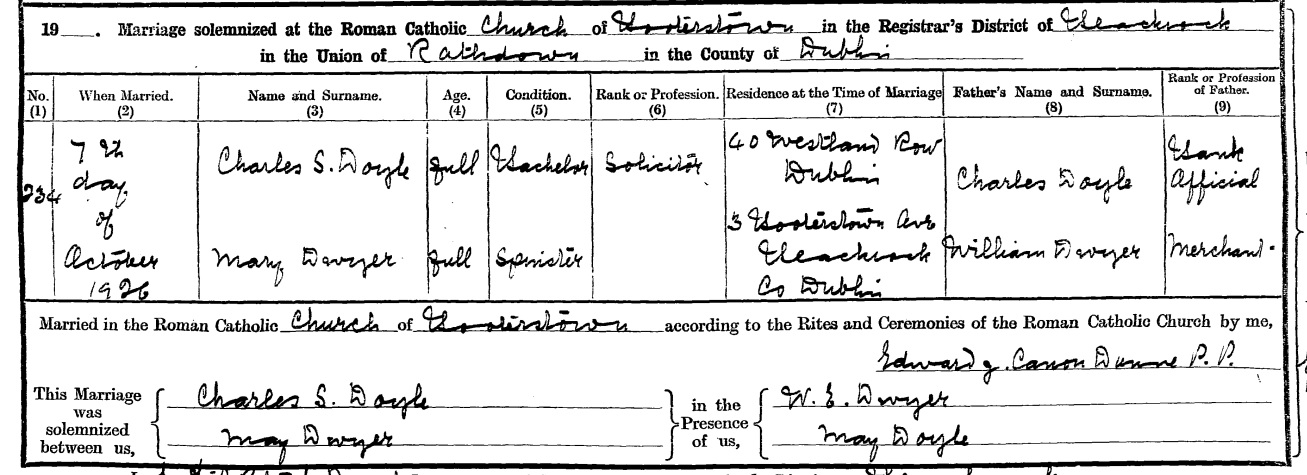 19 . Marriage solemnized at the Roman Catholic Church of Booterstown in the Registrar's District of Blackrock
in the Union of Rathdown in the County of Dublin
No. (1) When Married. (2) Name and Surname. (3) Age. (4) Condition. (5) Rank or Profession. (6) Residence at the Time of Marriage (7) Father's Name and Surname. (8) Rank or Profession of Father. (9)
234 7th day of October 1926
Charles S. Doyle full Bachelor Solicitor 40 Westland Row Dublin Charles Doyle Bank Official
Mary Dwyer full Spinister 3 Booterstown Ave Blackrock Co Dublin William Dwyer Merchant
Married in the Roman Catholic Church of Booterstown according to the Rites and Ceremonies of the Roman Catholic Church by me,
Edward J. Canon Dunne P.P.
This Marriage was solemnized between us, Charles S. Doyle
May Dwyer
in the Presence of us, W. E. Dwyer
May Doyle